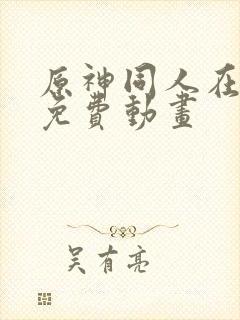 原神同人在
免費動畫
吴有亮